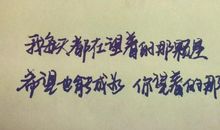 我每天都在望着的那颗星
希望也能成为 你望着的那